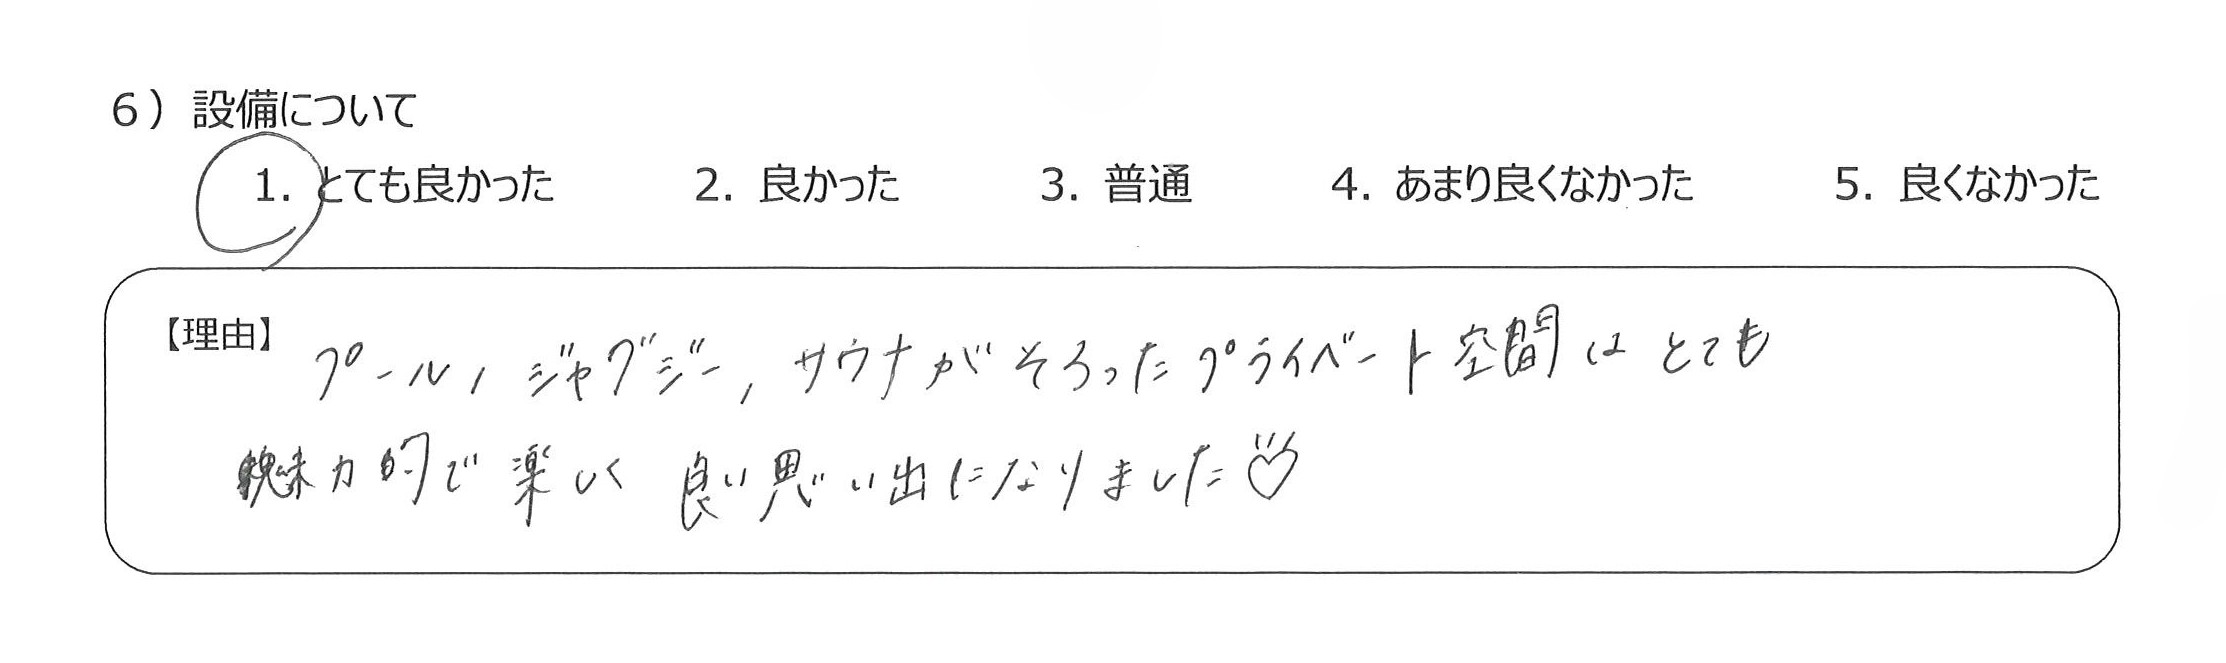 6）設備について
1. とても良かった 2. 良かった 3. 普通 4. あまり良くなかった 5. 良くなかった
【理由】
プール, ジャグジー, サウナがそろったプライベート空間はとても
魅力的で楽しく良い思い出になりました♡